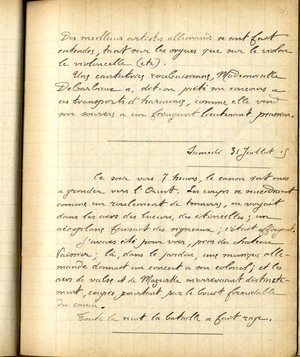 Des meilleurs artistes allemands se sont fait
entendre, tant sur les orgues que sur le violon
le violoncelle (etc).
Une cantatrice roubaisienne, Mademoiselle
a, dit-on prêté son concours à
ces transports d'harmonie, comme elle vend
son sourire à un fringant lieutenant prussien.
Samedi 31 Juillet 15
Ce soir vers 7 heures, le canon s'est mis
à gronder vers l'Ouest. Les coups se succédaient
comme un roulement de tonnerre, on voyait
dans les airs des lueurs, des étincelles; un
aéroplane faisant des signaux; c'était effrayant.
J'avais été pour voir, près du château
Vaissier; là, dans le jardin, une musique alle-
mande donnait un concert à son colonel; et les
airs de valse et de Mazurka m'arrivaient distincte-
ment, coupés pourtant par le bruit formidable
du canon.
Toute la nuit la bataille a fait rage.